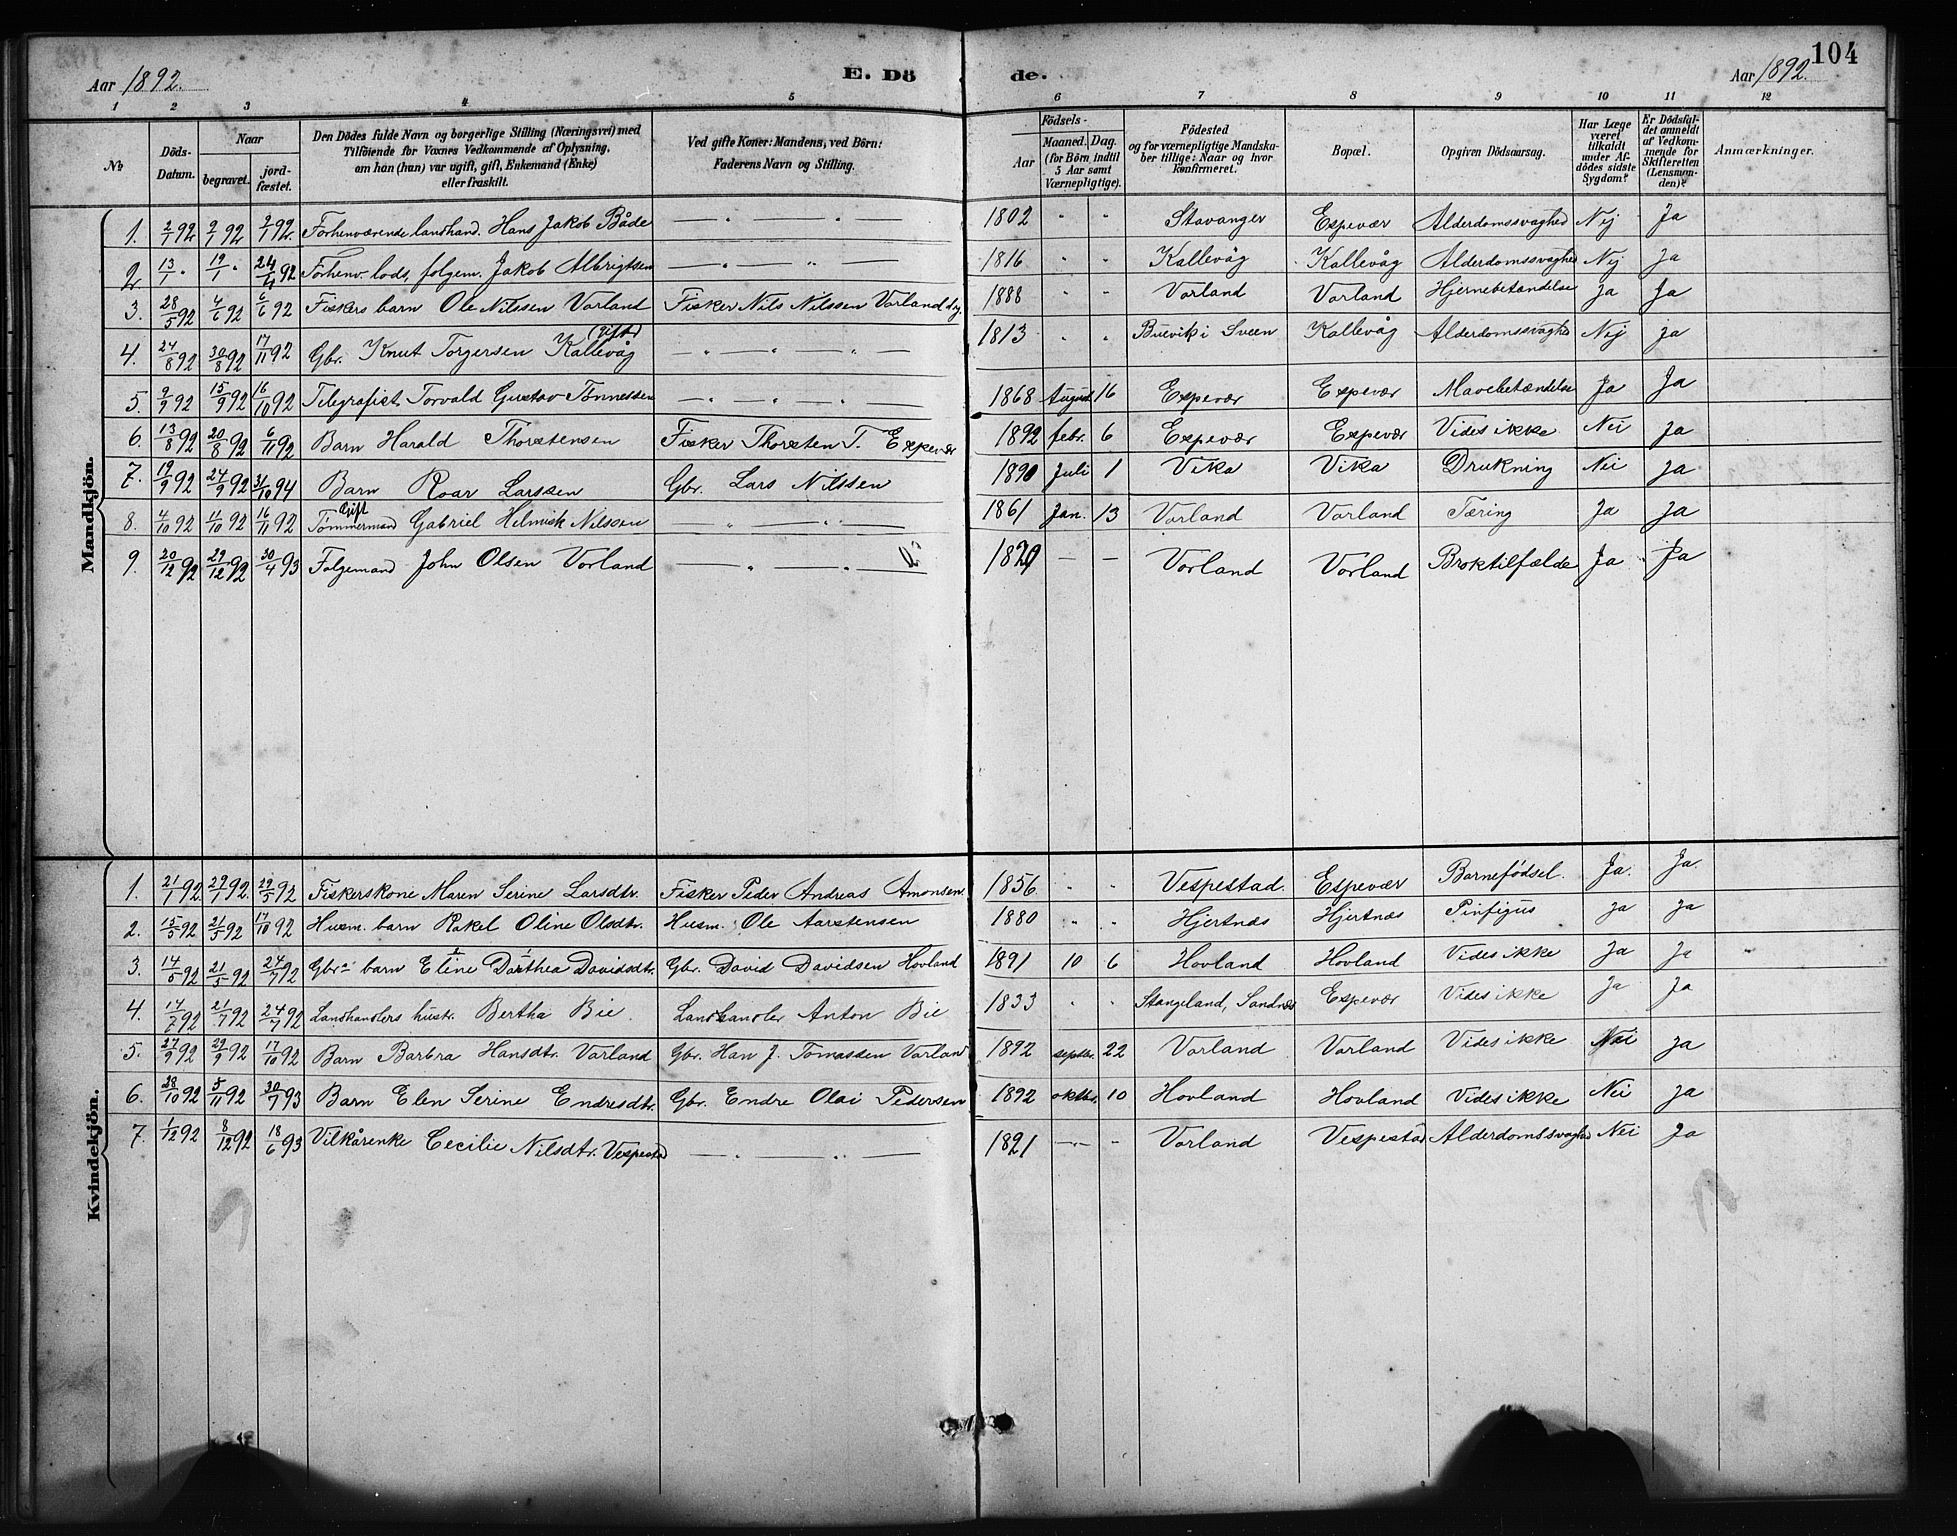 104
Aar 1892. E. Dö de. Aar 1892.
1 2 3 4 5 6 7 8 9 10 11 12
No. Döds-Datum. Naar begravet. jord-fæstet. Den Dödes fulde Navn og borgerlige Stilling (Næringsvei) med Tilföiende for Voxnes Vedkommende af Oplysning, om han (hun) var ugift, gift, Enkemand (Enke) eller fraskilt. Ved gifte Koner: Mandens, ved Börn: Faderens Navn og Stilling. Födsels- Aar Maaned. Dag. (for Börn indtil 5 Aar samt Værnepligtige). Födested og for værnepligtige Mandskaber tillige: Naar og hvor konfirmeret. Bopæl. Opgiven Dödsaarsag. Har Læge været tilkaldt under Afdödes sidste Sygdom? Er Dödsfaldet anmeldt af Vedkommende for Skifteretten (Lensmanden)? Anmærkninger.
Mandkjön.
1. 2/1 92 9/1 92 9/1 92. Forhenværende landhand. Hans Jakob Både — " — " — 1802 " " Stavanger Espevær Alderdomssvaghed Nej Ja
2. 13/1 " 19/1 " 24/4 92 Forhenv. lods, folgem. Jakob Albrigtsen — " — " — 1816 " " Kallevåg Kallevåg Alderdomssvaghed Nej Ja
3. 28/5 92 4/6 92 6/6 92 Fiskers barn Ole Nilssen Vorland Fisker Nils Nilssen Vorland 1888 " " Vorland Vorland Hjernebetændelse Ja Ja
4. 24/8 92 30/8 92 17/11 92 Gbr. Knut Torgersen Kallevåg (gift) — " — " — " — 1813 " " Buevik i Sveen Kallevåg Alderdomssvaghed Nej Ja
5. 9/9 92 15/9 92 16/10 92 Telegrafist Torvald Gustav Tönnessen 1868 August 16 Espevær Espevær Mavebetændelse Ja Ja
6. 13/8 92 20/8 92 6/11 92 Barn Harald Thorstensen Fisker Thorsten T. Espevær 1892 febr. 6 Espevær Espevær Vides ikke. Nei Ja
7. 19/9 92 24/9 92 31/10 94 Barn Roar Larssen Gbr. Lars Nilssen 1890 Juli 1 Vika Vika Drukning Nei Ja
8. 4/10 92 11/10 92 16/11 92 Gift Tömmermand Gabriel Helmik Nilssen — " — " — 1861 Jan. 13 Vorland Vorland Tæring Ja Ja
9. 20/12 92 29/12 92 30/4 93 Folgemand John Olsen Vorland — " — " — 1820 — — Vorland Vorland Broktilfælde Ja Ja
Kvindekjön.
1. 21/1 92 29/1 92 29/5 92 Fiskerskone Maren Serine Larsdtr. Fisker Peder Andreas Amonsen. 1856 " " Vespestad. Espevær Barnefödsel. Ja. Ja.
2. 15/5 92 21/5 92 17/10 92 Husm. barn Rakel Oline Olsdtr. Husm. Ole Aarstensen 1880 " " Hjertnæs Hjertnæs Pinfigus Ja Ja
3. 14/5 92 21/5 92 24/7 92 Gbr. barn Eline Dorthea Davidsdtr. Gbr. David Davidsen Hovland 1891 10 6 Hovland Hovland Vides ikke Ja Ja
4. 14/7 92 21/7 92 24/7 92 Landhandlers hustr. Bertha Bie. Landhandler Anton Bie 1833 " " Stangeland, Sandnæs Espevær Vides ikke Ja Ja
5. 27/9 92 29/9 92 17/10 92 Barn Barbra Hansdtr. Vorland Gbr. Han J. Tomassen Vorlan 1892 septbr. 22 Vorland Vorland Vides ikke Nei Ja
6. 28/10 92 5/11 92 30/7 93 Barn Elen Serine Endresdtr. Gbr. Endre Olai Pedersen 1892 oktbr. 10 Hovland Hovland Vides ikke Nei Ja
7. 1/12 92 8/12 92 18/6 93 Vilkårenke Cecilie Nilsdtr. Vespestad — " — " — 1821 — " — " Vorland Vespestad Alderdomssvaghed Nei Ja